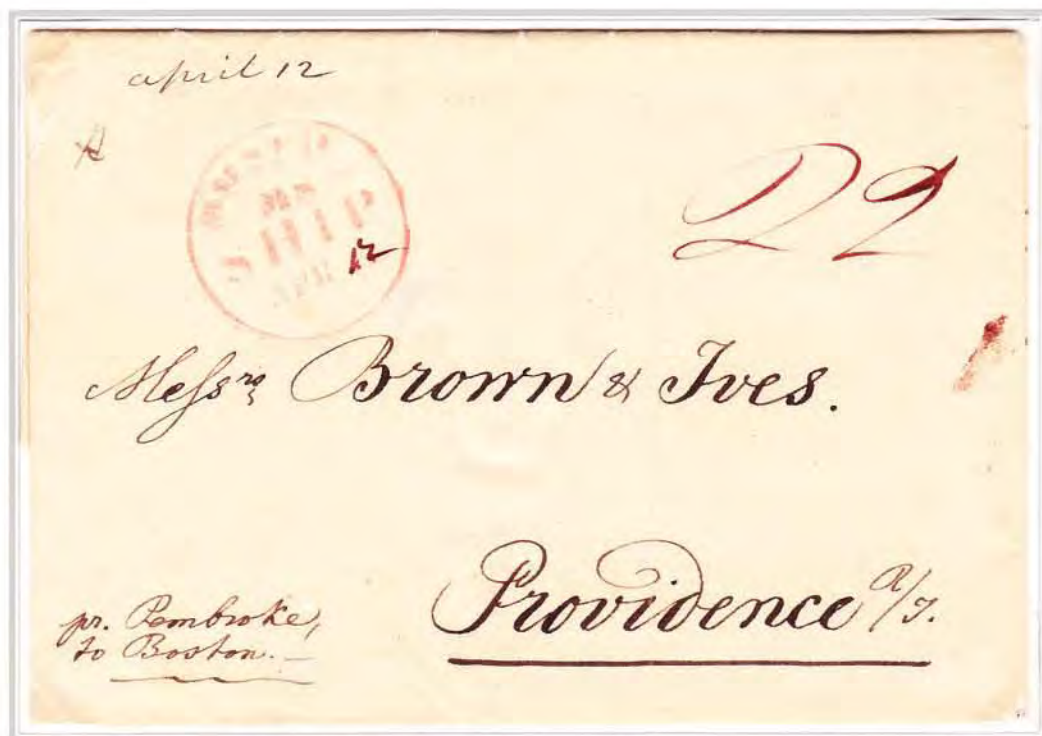 april 12
22
SHIP
APR 12
Messrs Brown & Ives.
Providence R/I.
pr. Pembroke,
to Boston.